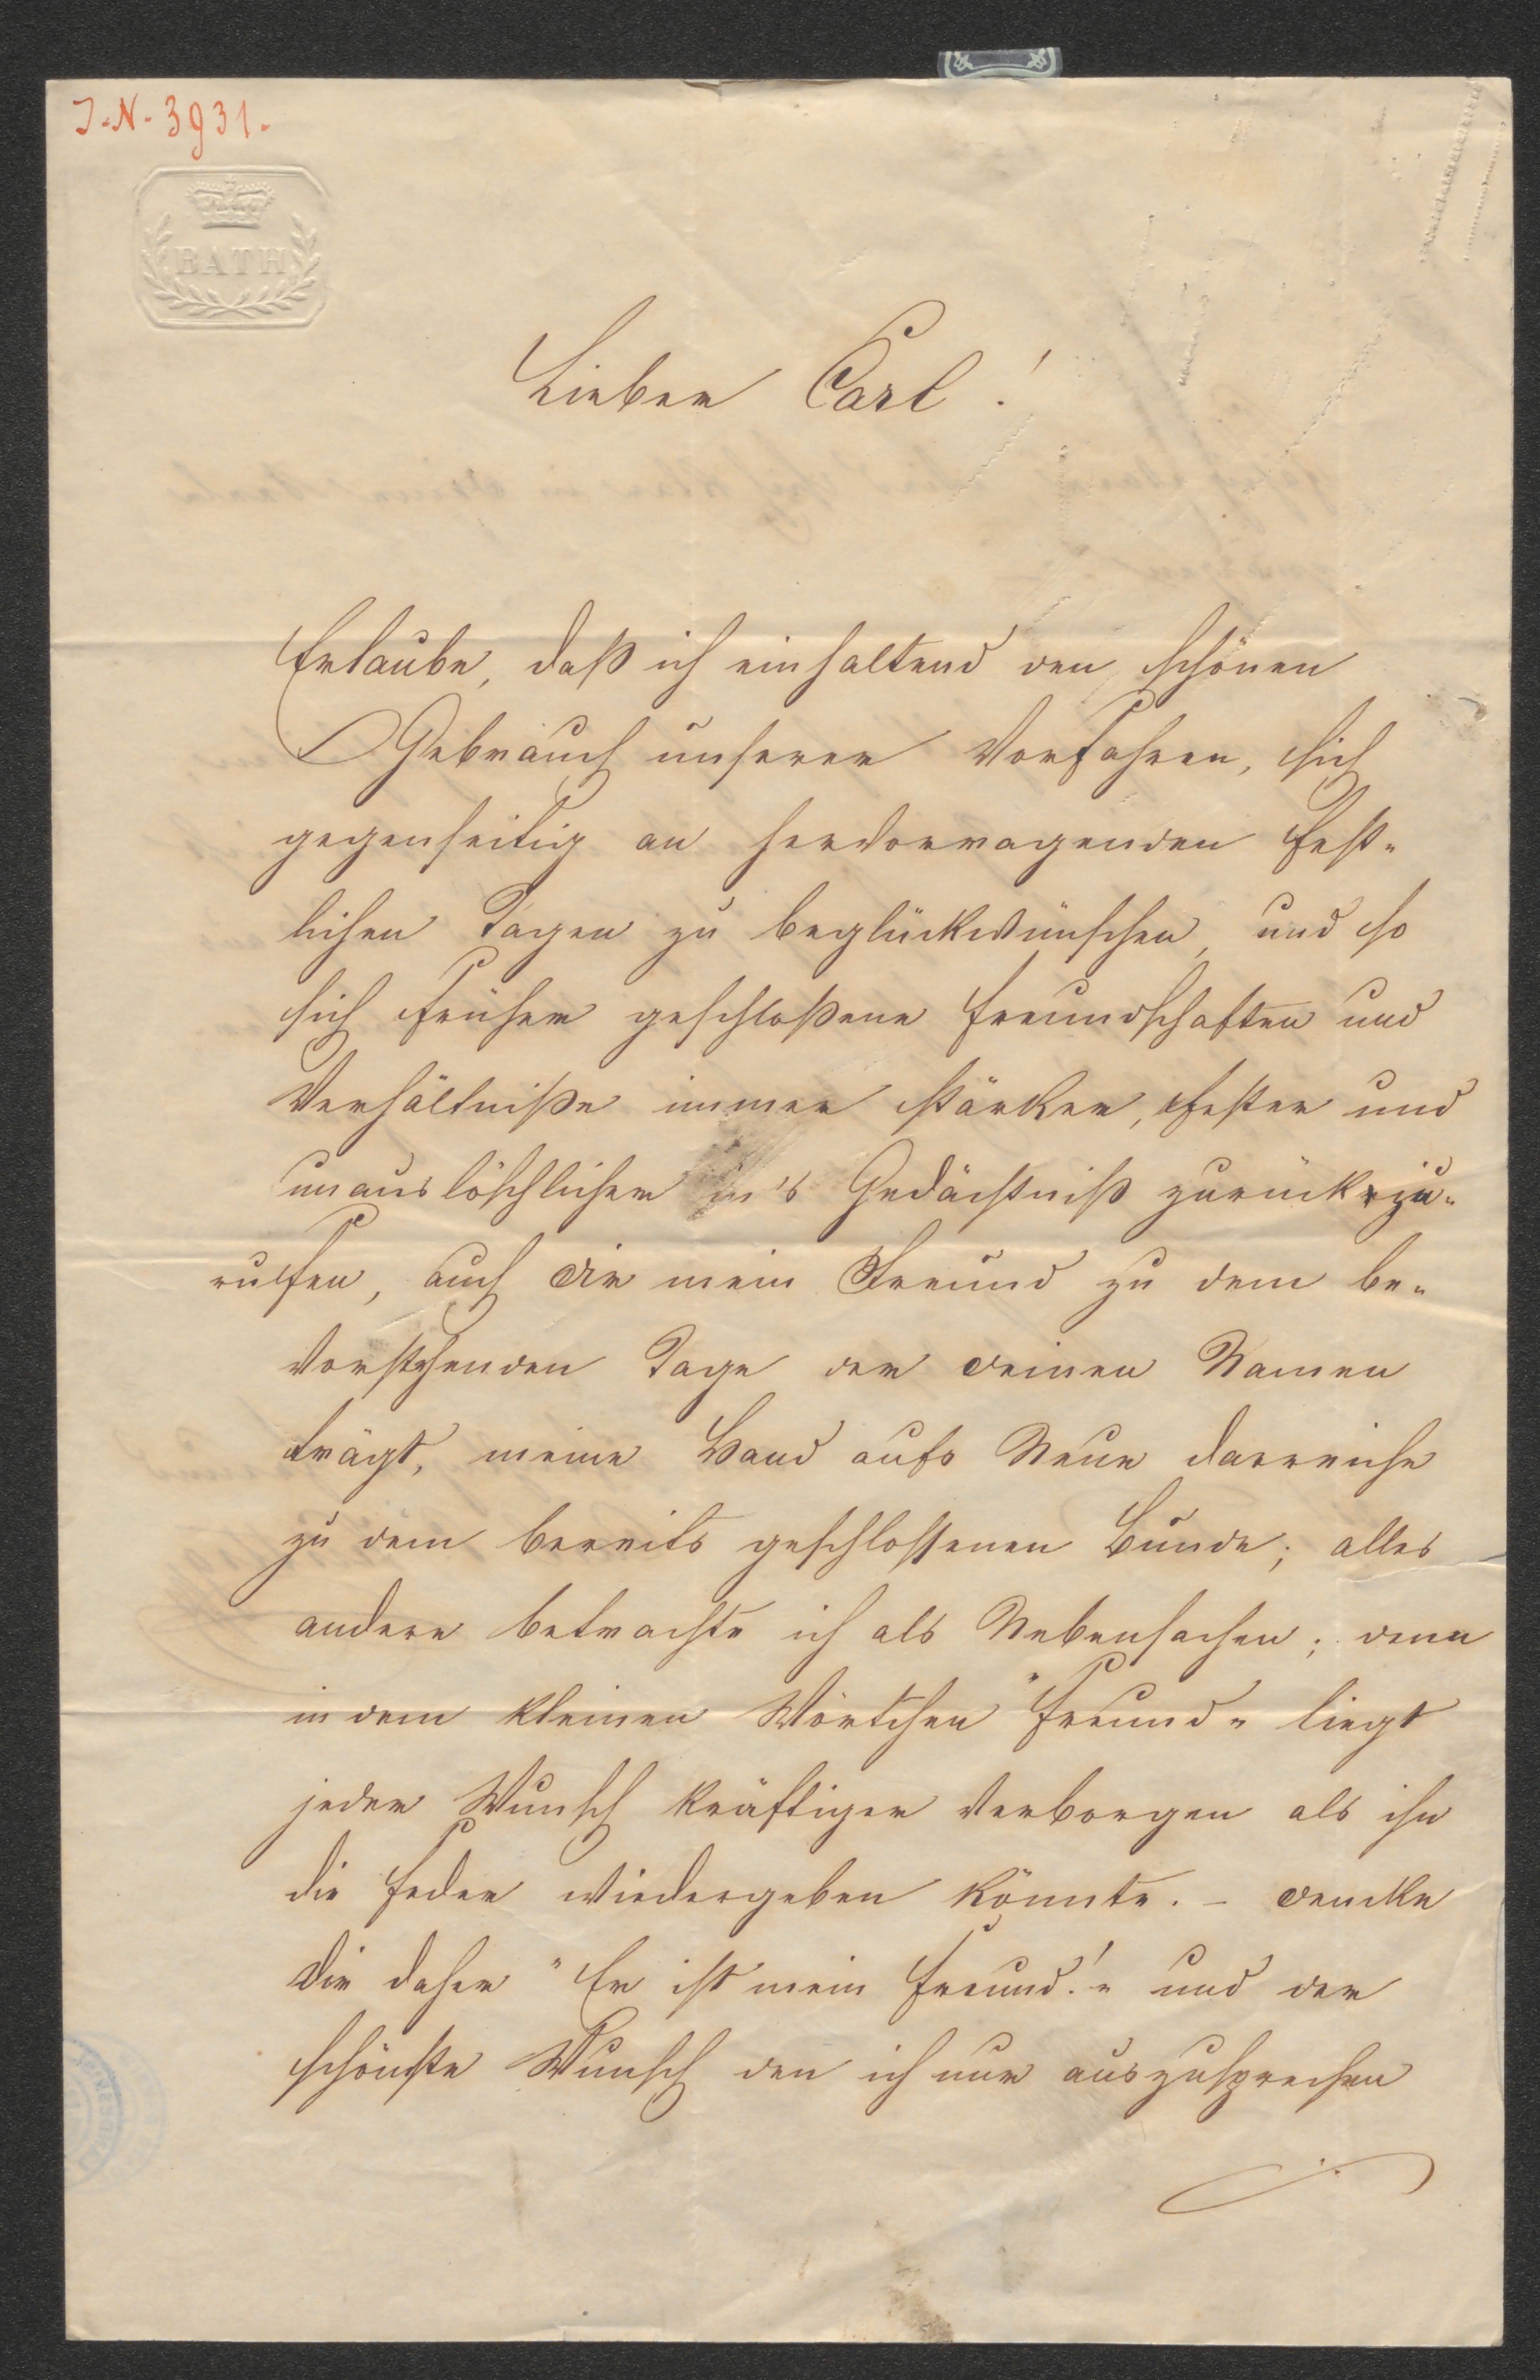 J.-N.- 3931.
BATH
Lieber Carl!
Erlaube, daß ich einhaltend den schönen
Gebrauch unserer Vorfahren, sich
gegenseitig an hervorragenden fest-
lichen Tagen zu beglückwünschen, und so
sich früher geschloßene Freundschaften und
Verhältniße immer stärker, fester und
unauslöschlicher in's Gedächtniß zurückzu-
rufen, auch Dir mein Freund zu dem be-
vorstehenden Tage der Deinen Namen
trägt, meine Hand aufs Neue darreiche
zu dem bereits geschlossenen Bunde; alles
andere betrachte ich als Nebensachen; denn
in dem kleinen Wörtchen "Freund" liegt
jeder Wunsch kräftiger verborgen als ihn
die Feder wiedergeben könnte. - Dencke
Dir daher "Er ist mein Freund!" und der
schönste Wunsch den ich nur auszusprechen